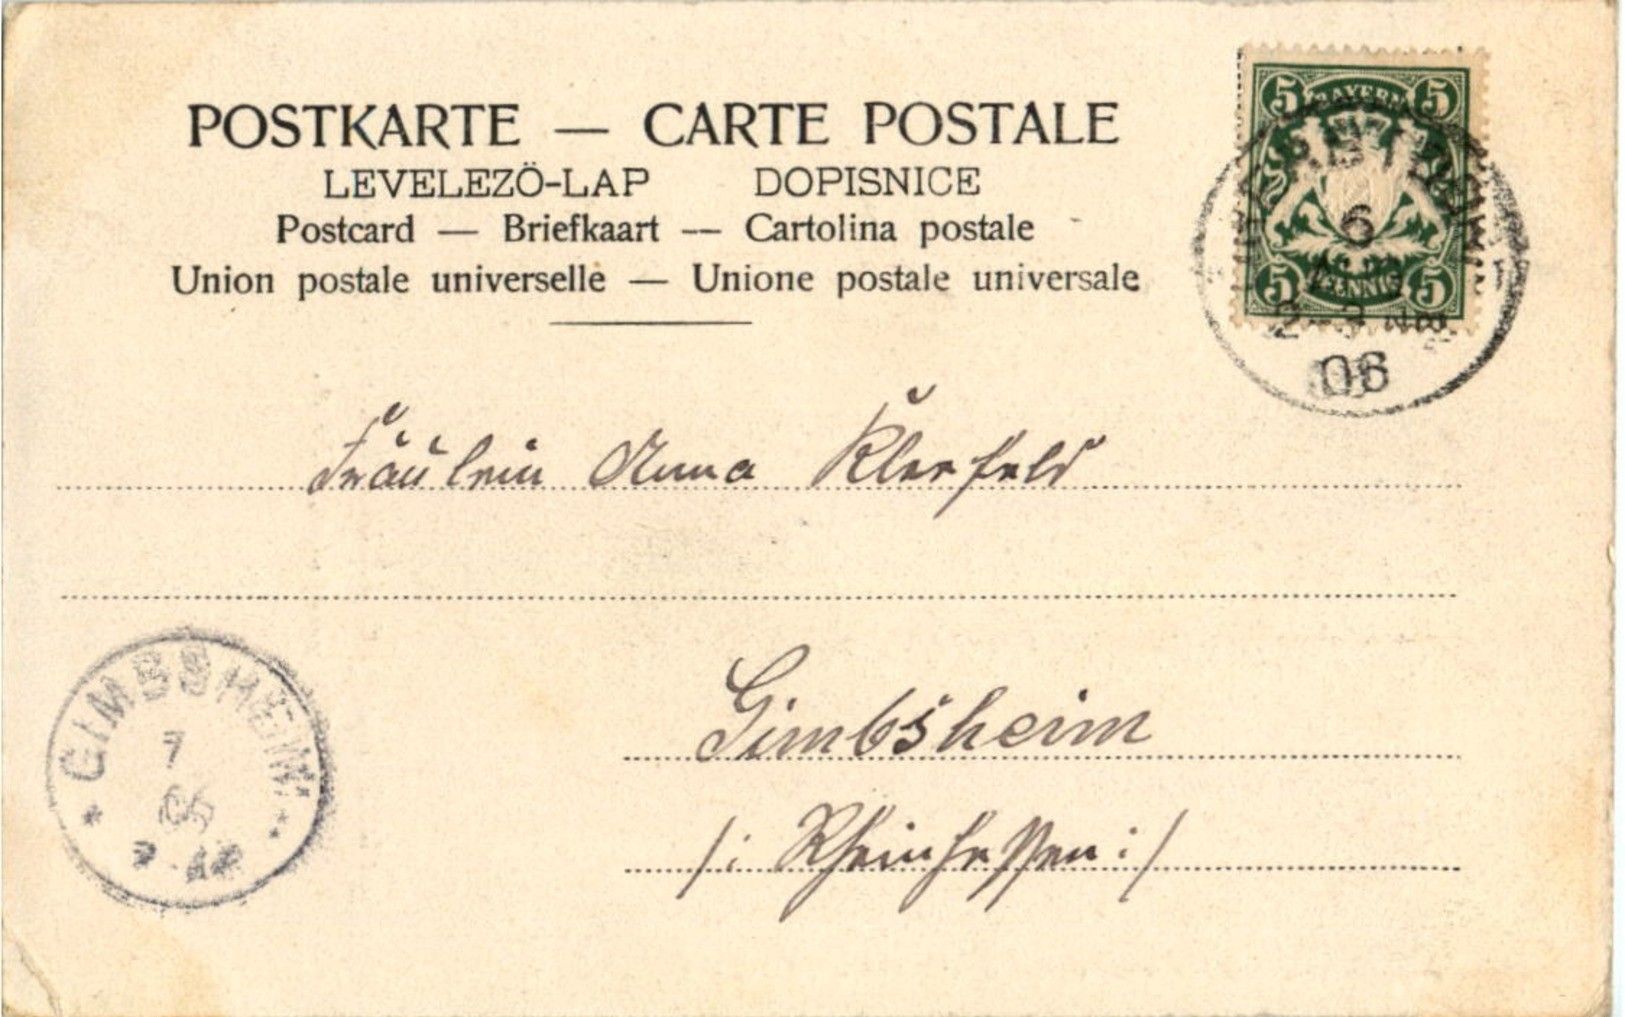 POSTKARTE — CARTE POSTALE
LEVELEZÖ-LAP DOPISNICE
Postcard — Briefkaart — Cartolina postale
Union postale universelle — Unione postale universale
5 BAYERN 5
5 PFENNIG 5
6
2-3 NM
06
Fräulein Anna Klerfeld
Gimbsheim
/: Rheinhessen :/
* GIMBSHEIM *
7